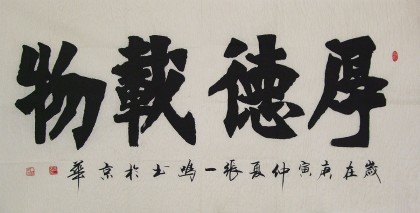 厚德載物
歲在庚寅仲夏張一鳴書於京華